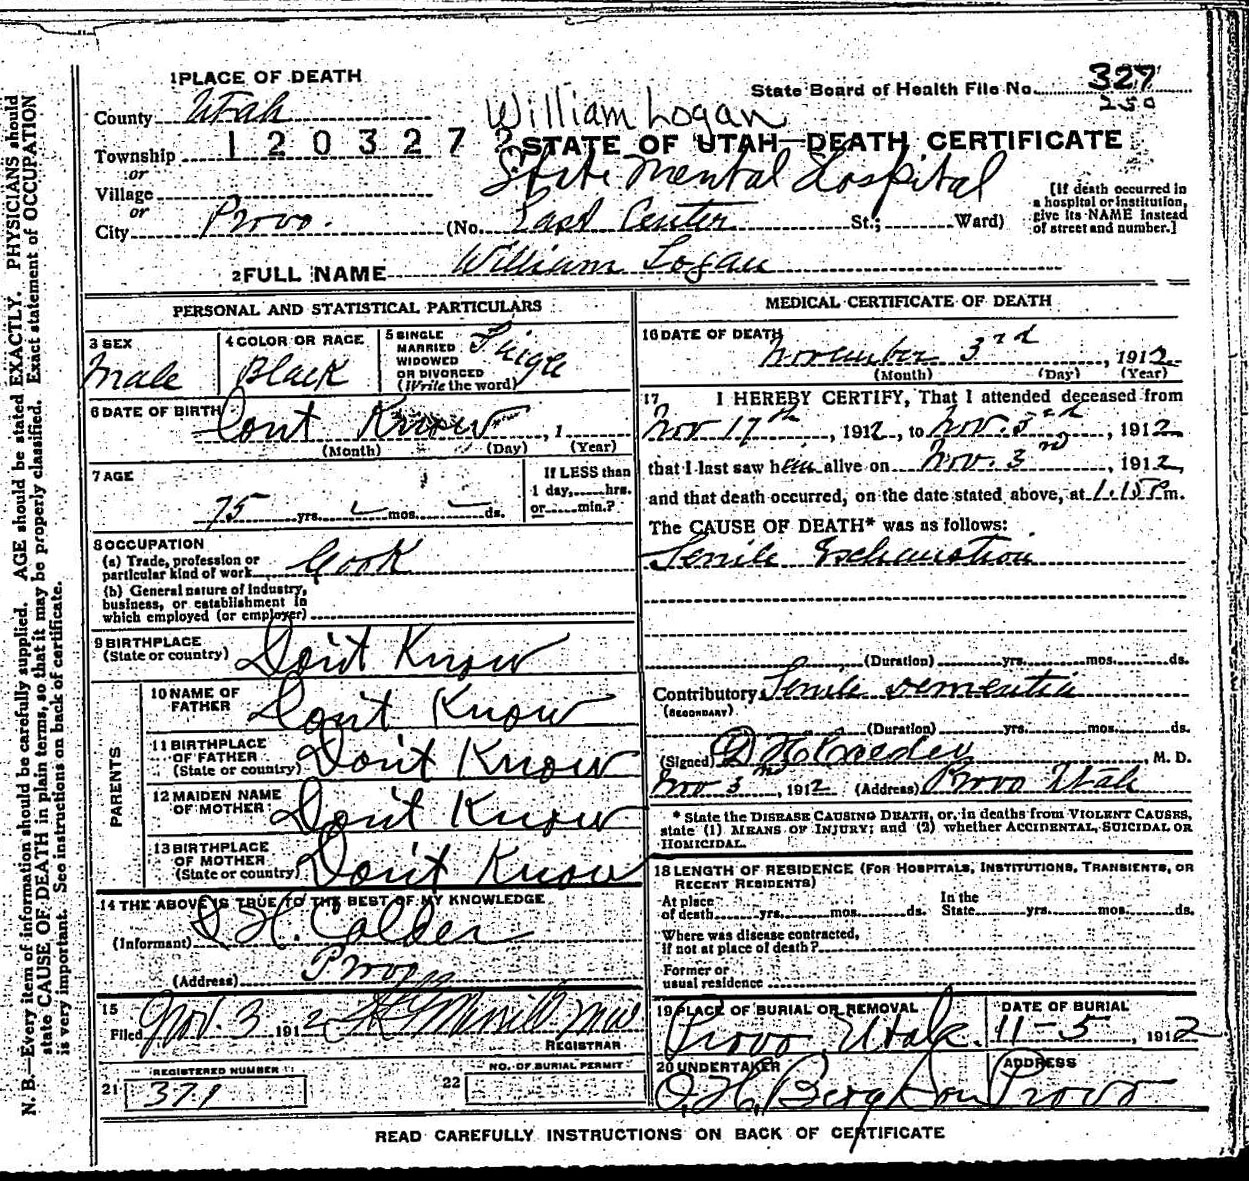 1 PLACE OF DEATH
State Board of Health File No. 327
250
County Utah
William Logan
Township 1203272
STATE OF UTAH—DEATH CERTIFICATE
or
Village
State Mental Hospital
or
City Provo. (No. East Center St.; Ward)
[If death occurred in
a hospital or institution,
give its NAME instead
of street and number.]
2 FULL NAME William Logan
PERSONAL AND STATISTICAL PARTICULARS
3 SEX
Male
4 COLOR OR RACE
Black
5 SINGLE
MARRIED
WIDOWED
OR DIVORCED
(Write the word)
Single
6 DATE OF BIRTH
Dont Know, 1
(Month) (Day) (Year)
7 AGE
75 yrs. mos. ds.
If LESS than
1 day, hrs.
or min.?
8 OCCUPATION
(a) Trade, profession or
particular kind of work Cook
(b) General nature of industry,
business, or establishment in
which employed (or employer)
9 BIRTHPLACE
(State or country) Don't Know
PARENTS
10 NAME OF
FATHER Dont Know
11 BIRTHPLACE
OF FATHER
(State or country) Don't Know
12 MAIDEN NAME
OF MOTHER Don't Know
13 BIRTHPLACE
OF MOTHER
(State or country) Don't Know
14 THE ABOVE IS TRUE TO THE BEST OF MY KNOWLEDGE
(Informant) D H. Calder
(Address) Provo
15
Filed Nov. 3 1912
REGISTRAR
REGISTERED NUMBER
21 371
NO. OF BURIAL PERMIT
22
MEDICAL CERTIFICATE OF DEATH
16 DATE OF DEATH
November 3rd, 1912
(Month) (Day) (Year)
17 I HEREBY CERTIFY, That I attended deceased from
Nov 17th, 1912, to Nov. 3rd, 1912
that I last saw him alive on Nov. 3rd, 1912,
and that death occurred, on the date stated above, at 1.15 P m.
The CAUSE OF DEATH* was as follows:
Senile Exhaustion
(Duration) yrs. mos. ds.
Contributory Senile dementia
(SECONDARY)
(Duration) yrs. mos. ds.
(Signed), M. D.
Nov 3rd, 1912 (Address) Provo Utah
* State the DISEASE CAUSING DEATH, or, in deaths from VIOLENT CAUSES,
state (1) MEANS OF INJURY; and (2) whether ACCIDENTAL, SUICIDAL OR
HOMICIDAL.
18 LENGTH OF RESIDENCE (FOR HOSPITALS, INSTITUTIONS, TRANSIENTS, OR
RECENT RESIDENTS)
At place
of death yrs. mos. ds.
In the
State yrs. mos. ds.
Where was disease contracted,
if not at place of death?
Former or
usual residence
19 PLACE OF BURIAL OR REMOVAL
Provo, Utah.
DATE OF BURIAL
11-5, 1912
20 UNDERTAKER
O. H. Berg Son
ADDRESS
Provo
READ CAREFULLY INSTRUCTIONS ON BACK OF CERTIFICATE
N. B.—Every item of information should be carefully supplied. AGE should be stated EXACTLY. PHYSICIANS should
state CAUSE OF DEATH in plain terms, so that it may be properly classified. Exact statement of OCCUPATION
is very important. See instructions on back of certificate.